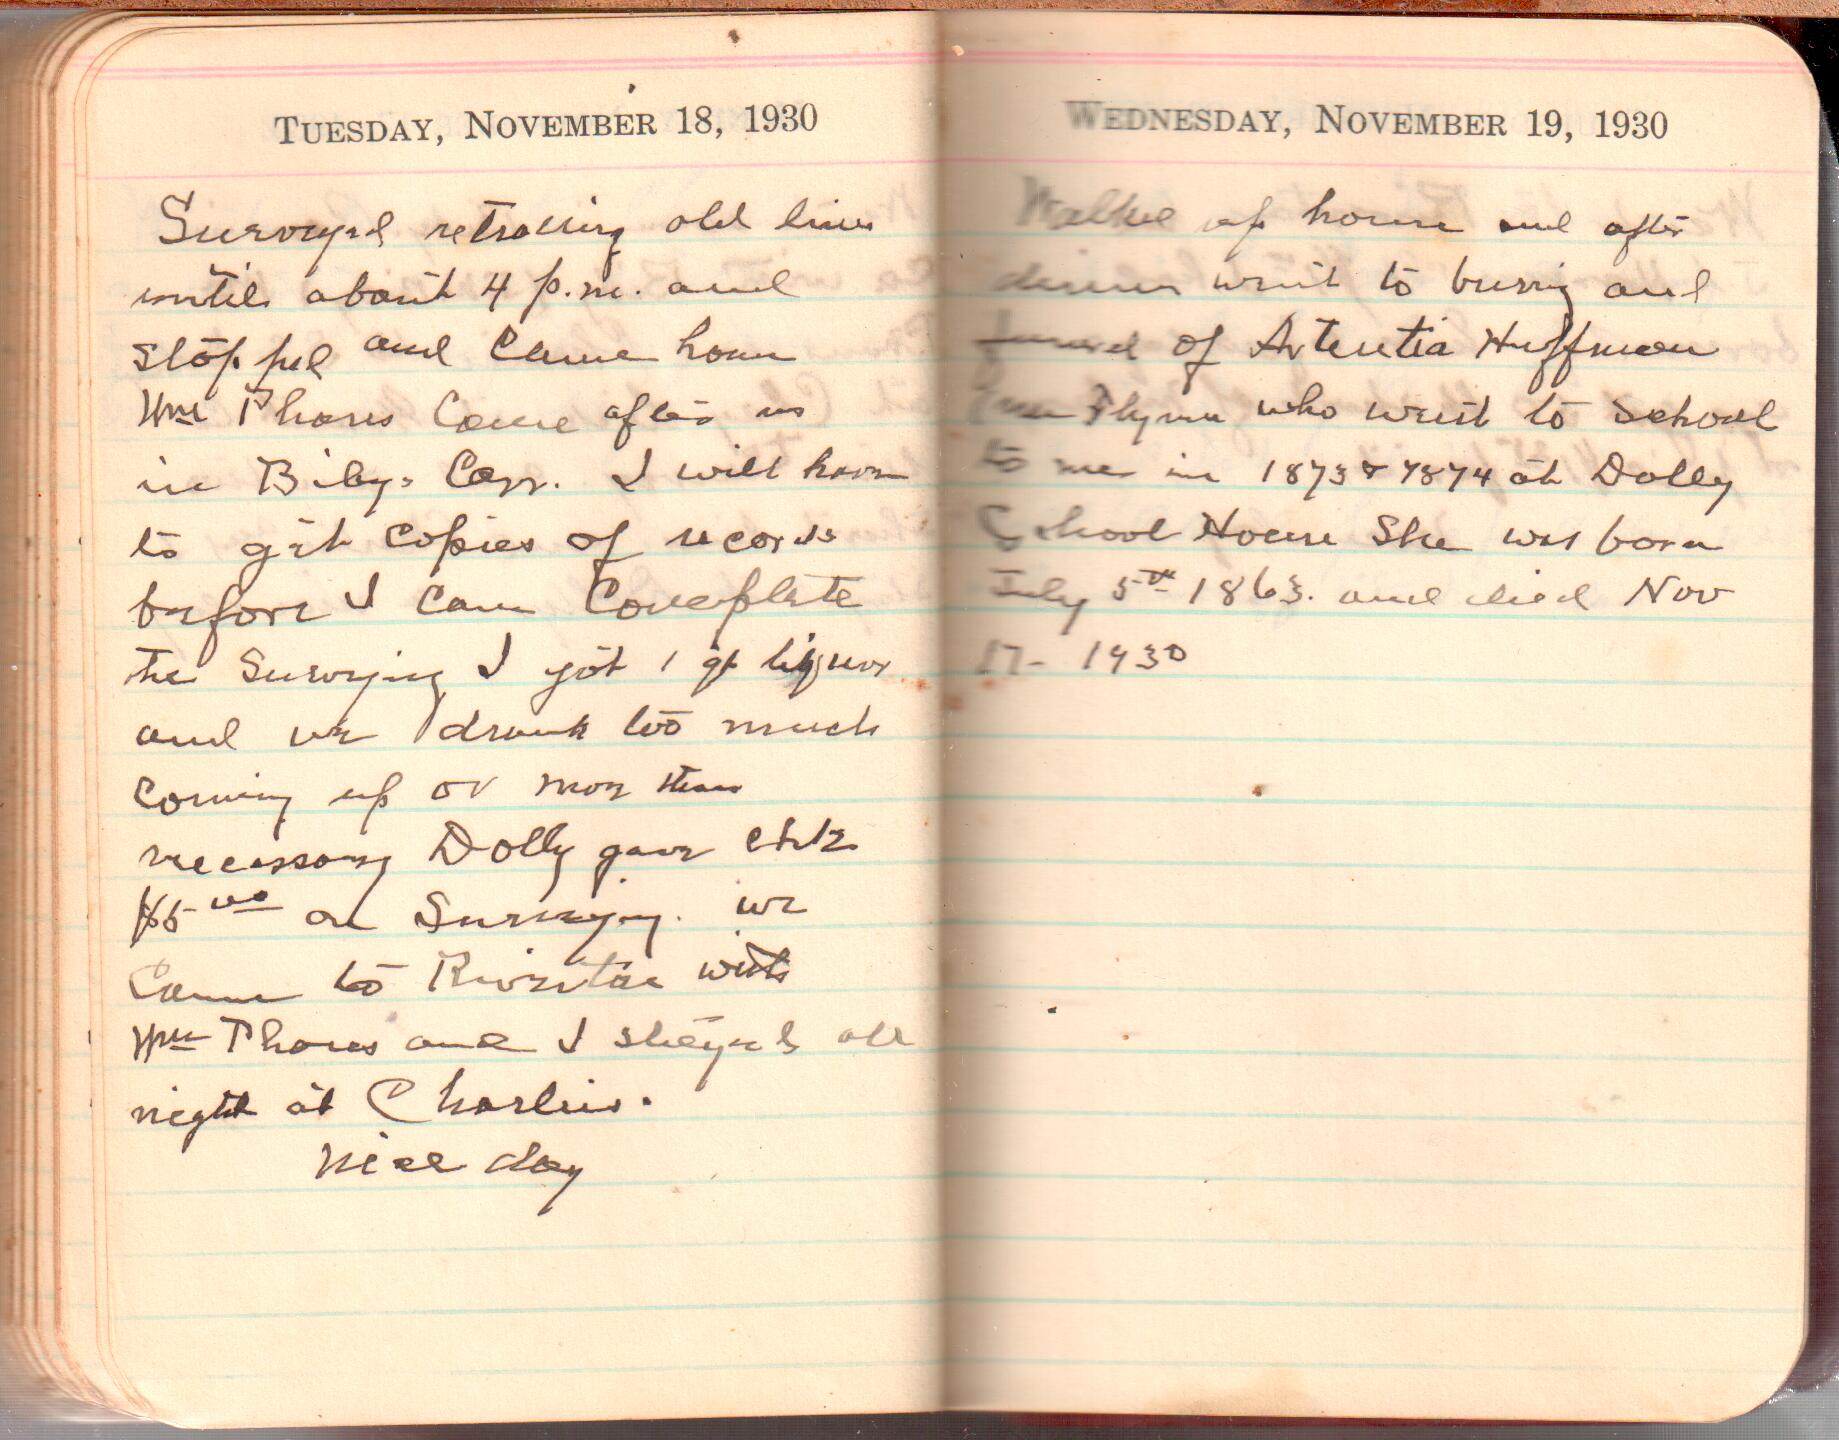 TUESDAY, NOVEMBER 18, 1930
Surveyed retracing old lines
until about 4 p.m. and
stopped and Came home
Wm Phares Came after us
in Bilys Carr. I will have
to git Copies of records
before I can Complete
the Surveying I got 1 qt liquor
and we drank too much
coming up or more than
necessary Dolly gave
$5 00 on Surveying. we
Came to Riverton with
Wm Phares and I stayed all
night at Charlies.
nice day
WEDNESDAY, NOVEMBER 19, 1930
Walked up home and after
dinner went to burring and
funeral of Artentia Huffman
Flynn who went to school
to me in 1873 & 1874 at Dolly
School House She was born
July 5th 1863. and died Nov
17- 1930